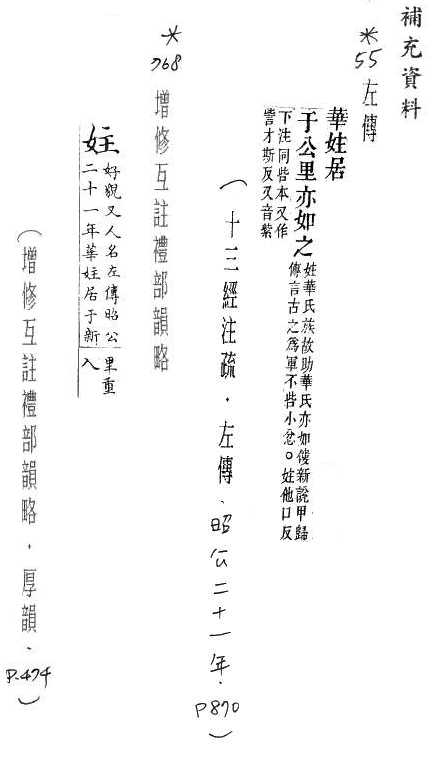 補充資料
*55 左傳
華妵居
于公里亦如之
妵華氏族故助華氏亦如僂新說甲歸
傳言古之為軍不呰小忿。妵他口反
下注同呰本又作
訾才斯反又音紫
(十三經注疏．左傳．昭公二十一年．P870)
*768 增修互註禮部韻略
妵
好貌又人名左傳昭公
二十一年華妵居于新
里重
入
(增修互註禮部韻略．厚韻．P.474)